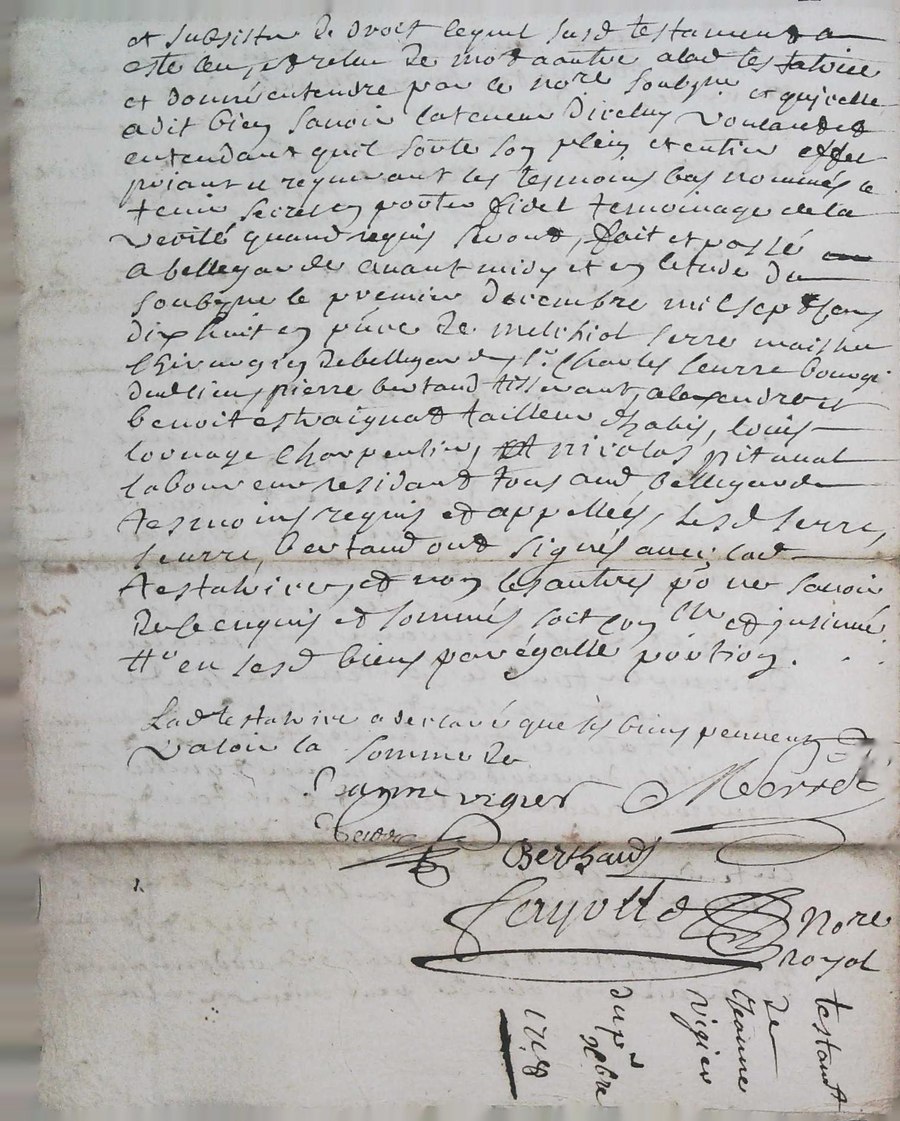 et subsister de droit lequel susd testament a
este leu, et releu de mot a autre a lad testatrice
et donné entendre par le nore soubsne et qui celle
a dit bien savoir la teneur diceluy voulant et
entendant quil sorte son plein et entier effet
priant et requerant les tesmoins bas nommés le
tenir secret en porter fidel temoinage de la
verité quand requis seront, fait et passé
a bellegarde avant midy et en letude du
soubsne le premier decembre mil sept cens
dix huit en pñce de melchiol serre maistre
chirurgien de bellegarde, sr. Charles seurre bourgs
dud lieu, pierre bertaud tisserant, alexendre et
benoit estraignat tailleur dhabis, louis
lornage charpentier, et nicolas pitaval
laboureur residant tous aud bellegarde
tesmoins requis et appellés, lesd serre,
seurre, bertaud ont signés avec lad
testatrice, et non les autres po ne savoir
de ce enquis et sommés soit et insinué
en sesd biens par égalle portion.
Lad testatrice a declaré que ses biens peuvent
valoir la somme de
Jeanne vigier MSerre
Seurre
Berthaud
nore
royal
testamt
de
Jeanne
vigier
du pr
xbre
1718